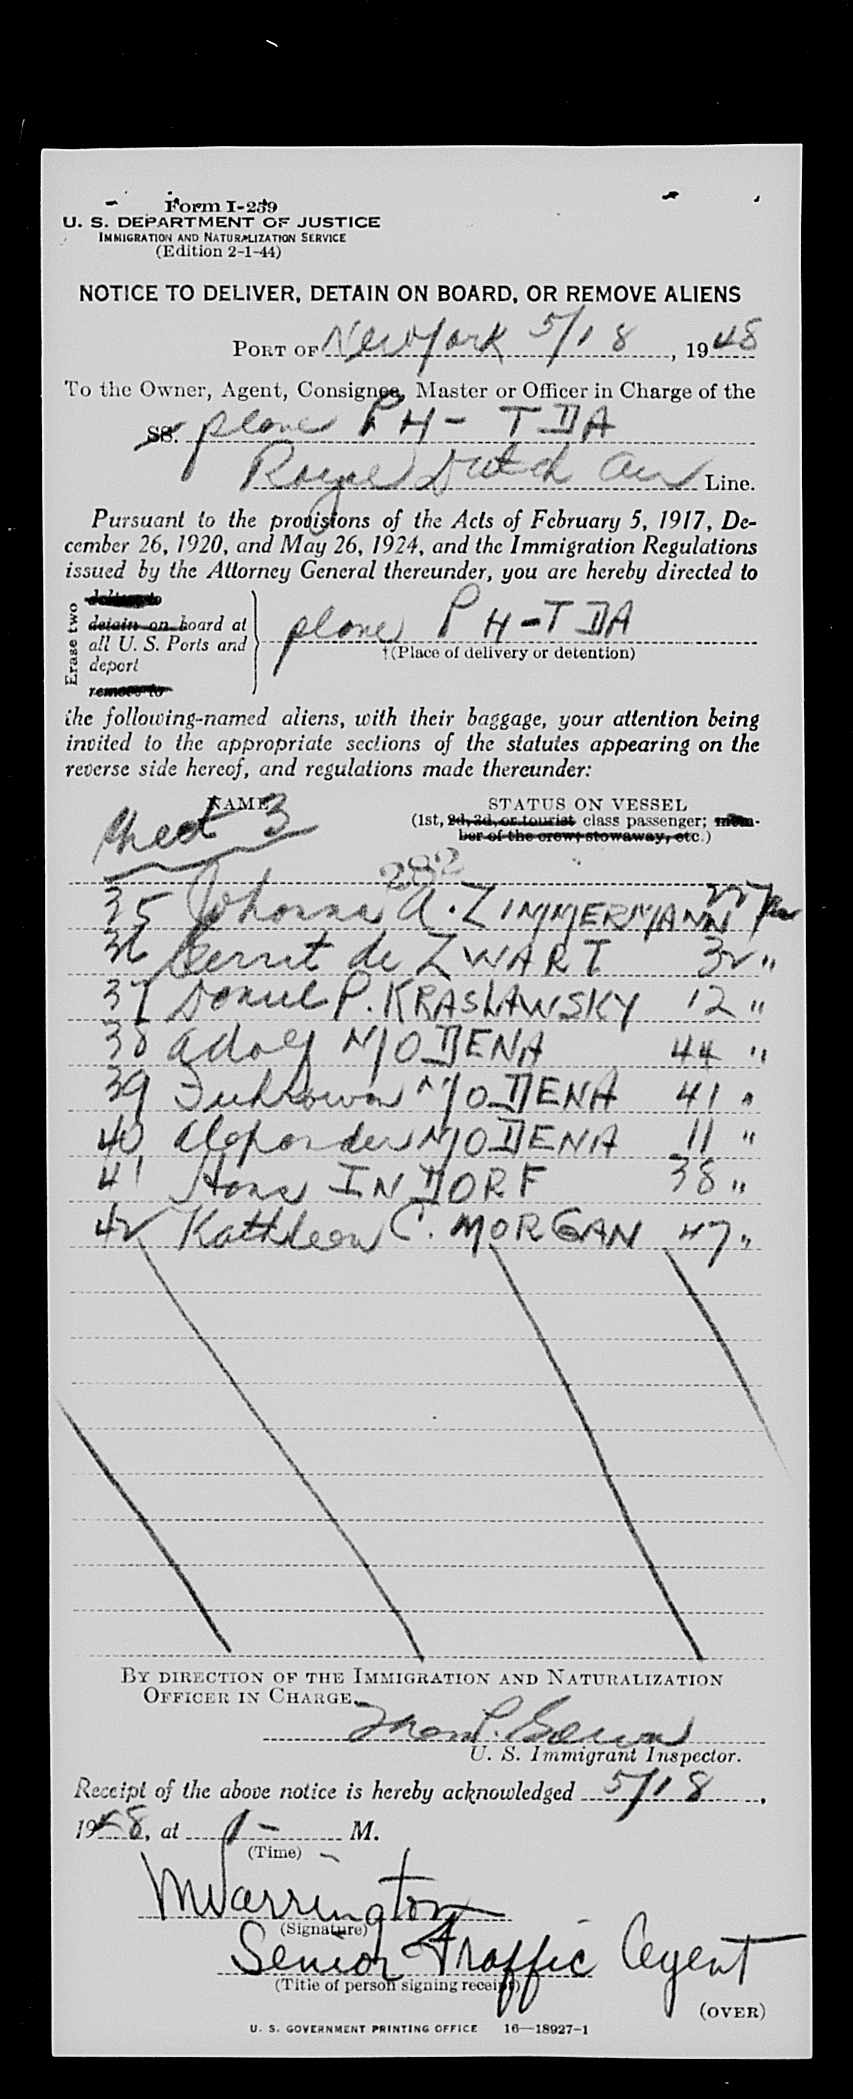 Form I-259
U. S. DEPARTMENT OF JUSTICE
IMMIGRATION AND NATURALIZATION SERVICE
(Edition 2-1-44)
NOTICE TO DELIVER, DETAIN ON BOARD, OR REMOVE ALIENS
PORT OF New York 5/18, 1948
To the Owner, Agent, Consignee, Master or Officer in Charge of the
SS. plane PH-TDA
Royal Dutch Air Line.
Pursuant to the provisions of the Acts of February 5, 1917, De-
cember 26, 1920, and May 26, 1924, and the Immigration Regulations
issued by the Attorney General thereunder, you are hereby directed to
Erase two
deliver to
detain on board at
all U. S. Ports and
deport
remove to
plane PH-TDA
†(Place of delivery or detention)
the following-named aliens, with their baggage, your attention being
invited to the appropriate sections of the statutes appearing on the
reverse side hereof, and regulations made thereunder:
NAME STATUS ON VESSEL
Sheet 3 (1st, 2d, 3d, or tourist class passenger; mem-
ber of the crew, stowaway, etc.)
282
35 Johanna A. ZIMMERMANN 22
36 Gerrit de ZWART 32 "
37 Daniel P. KRASLAWSKY 12 "
38 Adolf MODENA 44 "
39 MODENA 41 "
40 Alexander MODENA 11 "
41 Hans INDORF 38 "
42 Kathleen C. MORGAN 47 "
BY DIRECTION OF THE IMMIGRATION AND NATURALIZATION
OFFICER IN CHARGE.
U. S. Immigrant Inspector.
Receipt of the above notice is hereby acknowledged 5/18,
1948, at 1- M.
(Time)
MWarrington
(Signature)
Senior Traffic Agent
(Title of person signing receipt)
(OVER)
U. S. GOVERNMENT PRINTING OFFICE 16—18927-1